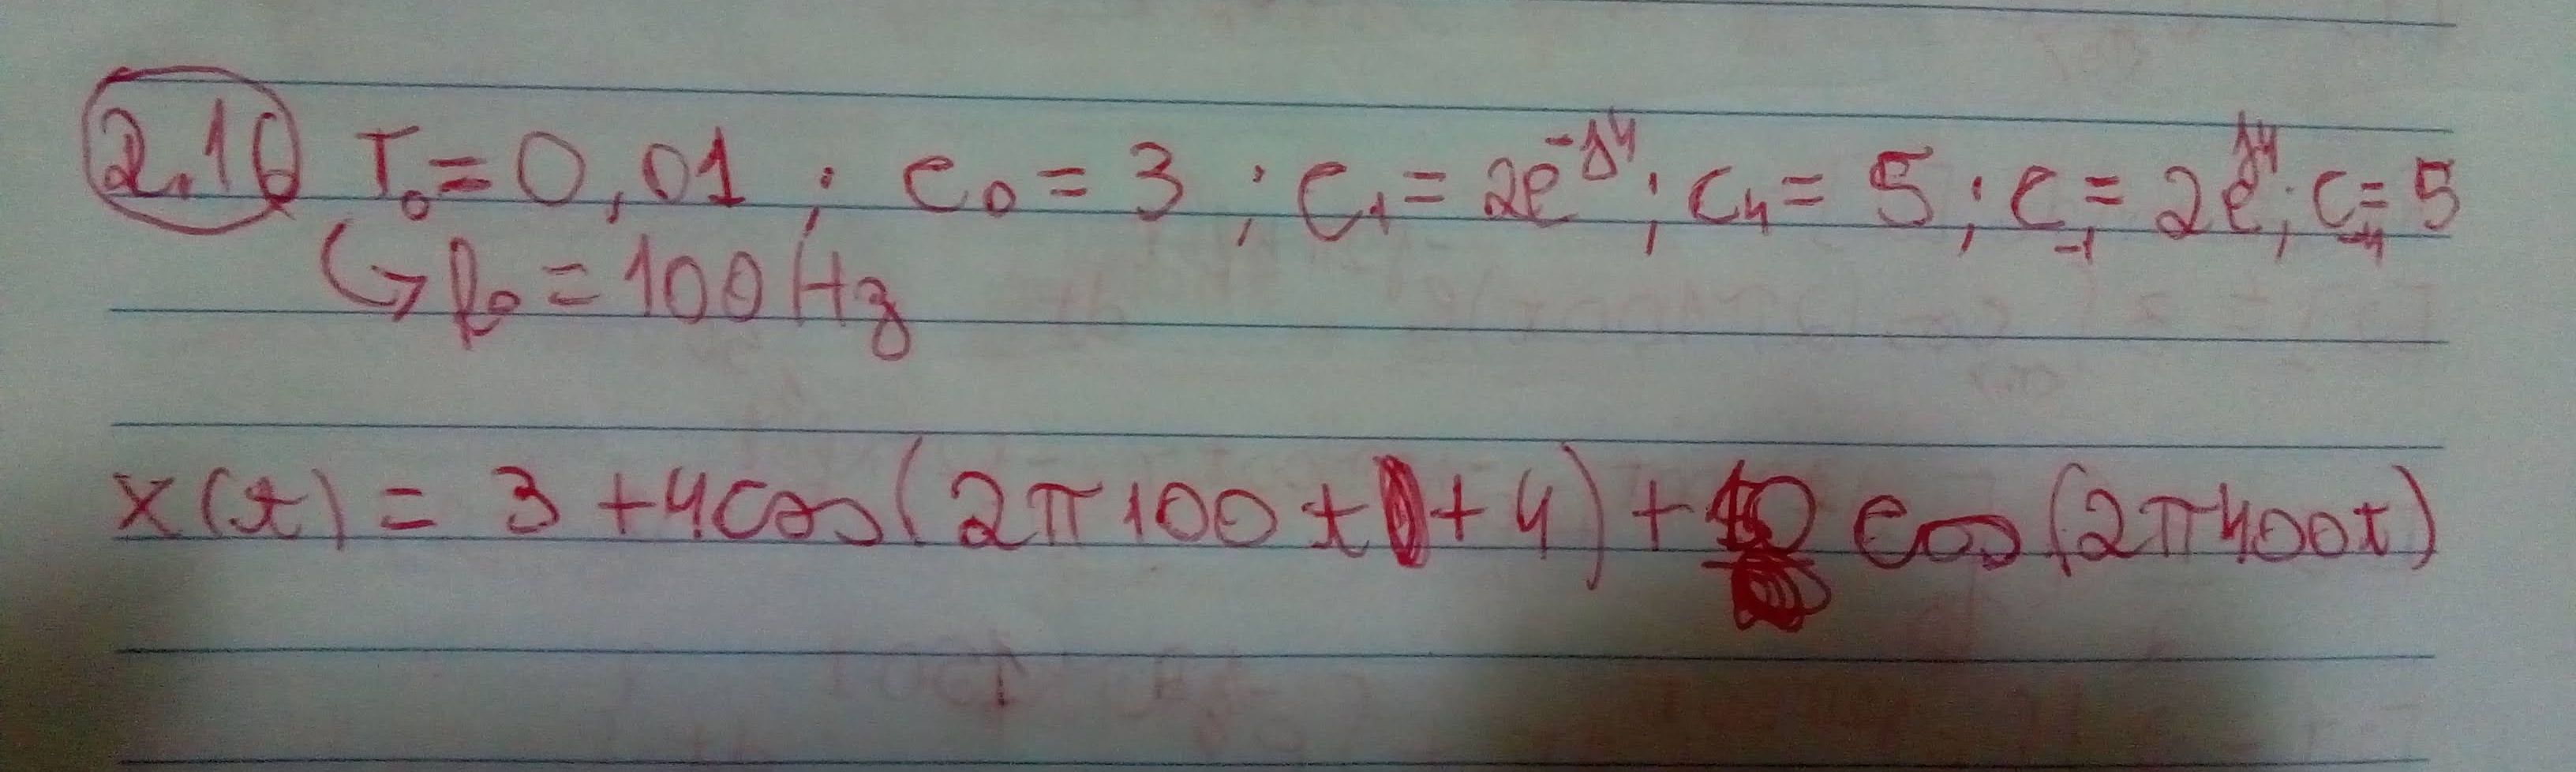 2.10 T₀ = 0,01 ; c₀ = 3 ; c₁ = 2e^-j4 ; c₄ = 5 ; c₋₁ = 2e^j4 ; c₋₄ = 5
↳ f₀ = 100 Hz
x(t) = 3 + 4cos(2π100t + 4) + 10 cos(2π400t)